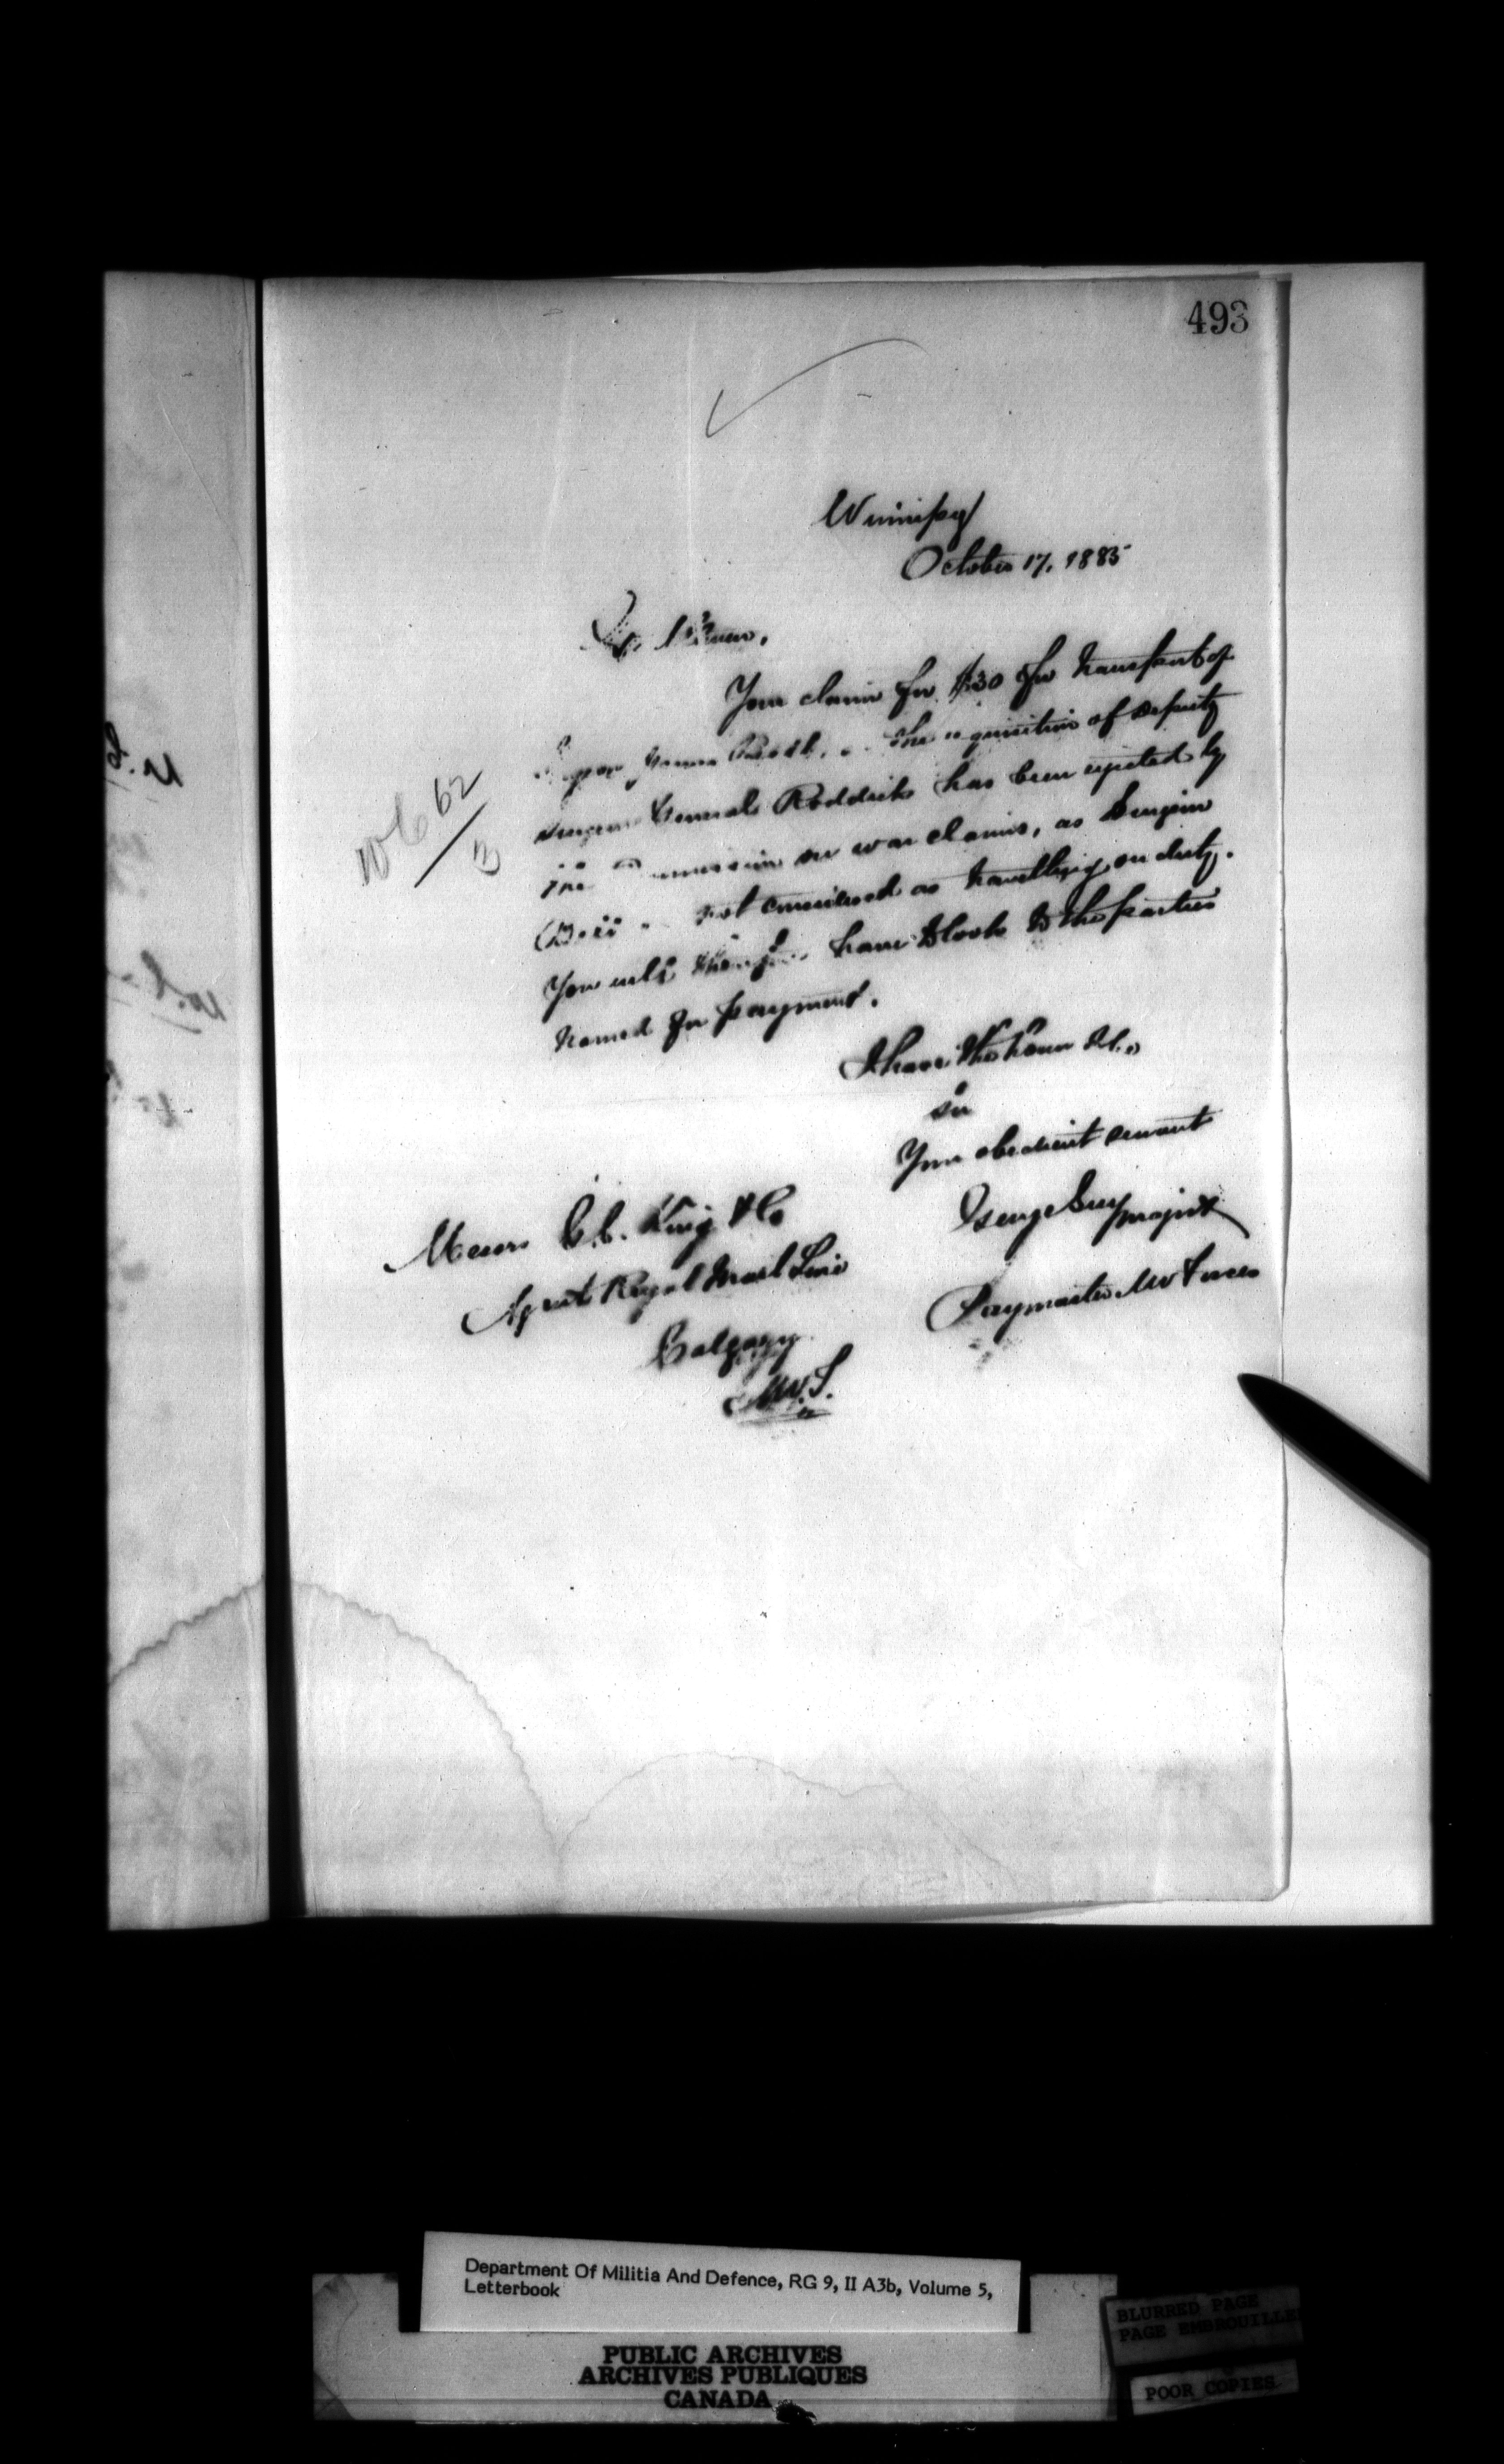 493
Winnipeg
October 17, 1885
Your claim for $30 for transport of
the requisition of Deputy
Surgeon General Roddick has been rejected by
the Commission on war claims, as Surgeon
not considered as travelling on duty.
You will therefore have to look to the parties
named for payment.
I have the honor to be,
Sir
Your obedient servant
George Guy major
Paymaster NW Forces
Messrs G.C. King & Co
Agents Royal Mail Line
Calgary
N.W.T.
Department Of Militia And Defence, RG 9, II A3b, Volume 5,
Letterbook
PUBLIC ARCHIVES
ARCHIVES PUBLIQUES
CANADA
BLURRED PAGE
PAGE EMBROUILLE
POOR COPIES